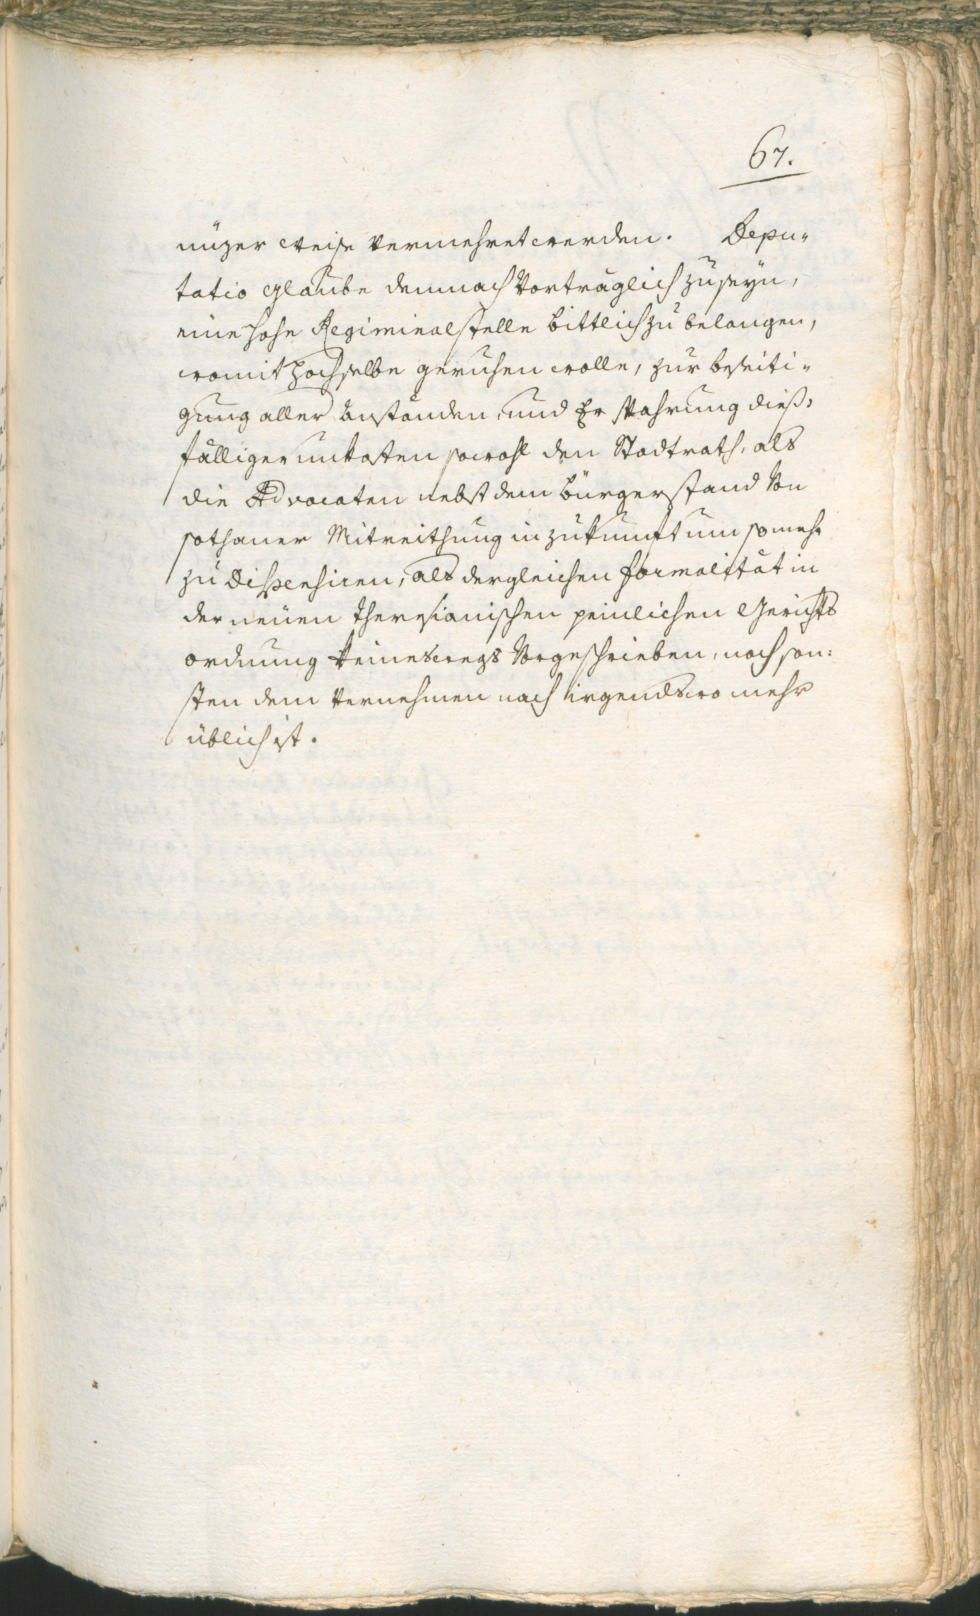 67.
nüzer weise vermehret werden. Depu-
tatio glaube demnach vorträglich zu seyn,
eine hohe Regiminalstelle bittlich zu belangen,
womit hochselbe geruhen wolle, zur beseiti-
gung aller anständen, und Ersparung dieß-
fälliger unkosten sowohl den Stadtrath, als
die Advocaten nebst dem bürgerstand von
sothaner Mitreithung in zukunft um so mehr
zu dispensiren, als dergleichen formalität in
der neuen Theresianischen peinlichen Gerichts
ordnung keineswegs vorgeschrieben, noch son-
sten dem vernehmen nach irgendswo mehr
üblich ist.